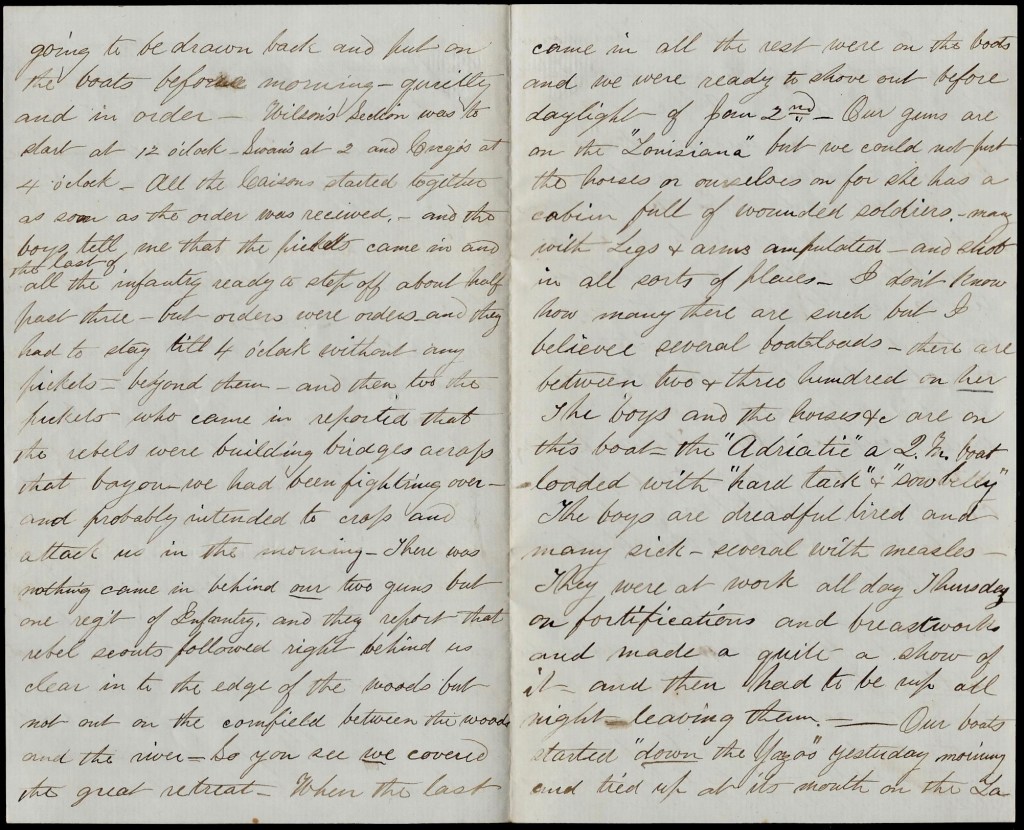 going to be drawn back and put on
the boats before morning - quietly
and in order - Wilson's Section was to
start at 12 o'clock - Swan's at 2 and Crego's at
4 o'clock - All the Caisons started together
as soon as the order was recieved, - and the
boys tell me that the pickets came in and
the last of
all the infantry ready to step off about half
past three - but orders were orders - and they
had to stay till 4 o'clock without any
pickets - beyond them - and then two the
pickets who came in reported that
the rebels were building bridges across
that bayou - we had been fighting over -
and probably intended to cross and
attack us in the morning - There was
nothing came in behind our two guns but
one reg't of Infantry. and they report that
rebel scouts followed right behind us
clear in to the edge of the woods but
not out on the cornfield between the woods
and the river - So you see we covered
the great retreat - When the last
came in all the rest were on the boats
and we were ready to shove out before
daylight of Jan 2nd - Our guns are
on the "Louisiana" but we could not put
the horses or ourselves on for she has a
cabin full of wounded soldiers. - many
with Legs & arms ampulated - and shot
in all sorts of places - I don't know
how many there are such but I
believe several boatloads - there are
between two & three hundred on her
The boys and the horses &c are on
this boat - the "Adriatic" a Q. M. boat
loaded with "hard tack" & "sowbelly"
The boys are dreadful tired and
many sick - several with measles -
They were at work all day Thursday
on fortifications and breastworks
and made a quite a show of
it - and then had to be up all
night leaving them. - Our boats
started "down the Yazoo" yesterday morning
and tied up at its mouth on the La